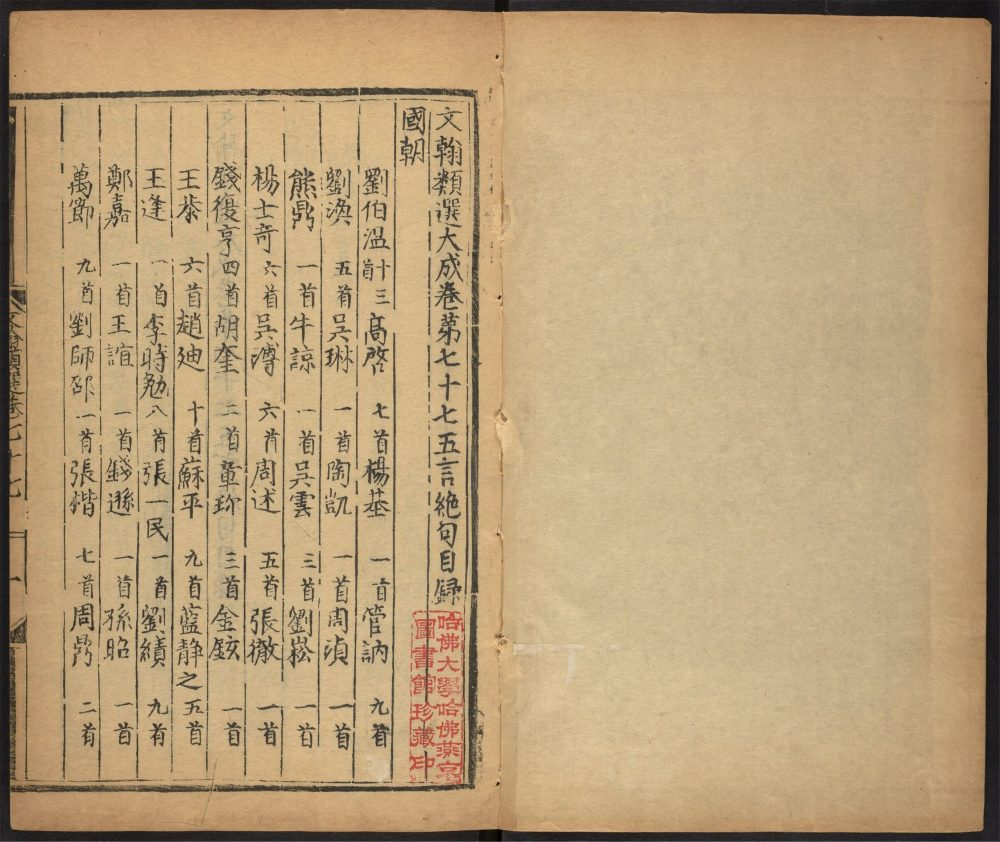 文翰類選大成卷第七十七五言絶句目録
國朝
劉伯溫十三首 高啓七首 楊基一首 管訥九首
劉渙五首 吳琳一首 陶凱一首 周湞一首
熊鼎一首 牛諒一首 吳雲三首 劉崧一首
楊士奇六首 吳溥六首 周述五首 張徹一首
錢復亨四首 胡奎二首 章珍三首 金鉉一首
王恭六首 趙迪十首 蘇平九首 藍静之五首
王逢一首 李時勉八首 張一民一首 劉績九首
鄭嘉一首 王誼一首 錢遜一首 孫昭一首
萬節九首 劉師邵一首 張楷七首 周鼎二首
七十七
一
哈佛大學哈佛燕京
圖書館珍藏印